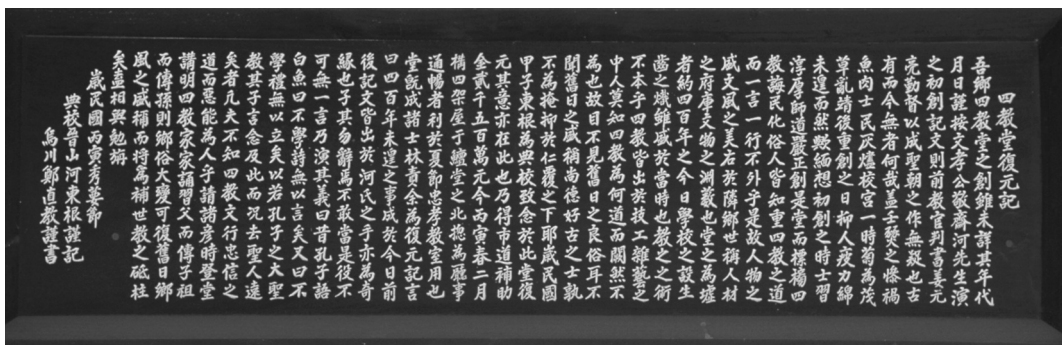 四教堂復元記
吾鄉四教堂之創雖未詳其年代
月日謹按文孝公敬齋河先生演
之初創記又則前教官判書姜元
亮勸督以成聖朝之作無疑也古
有而今無者何哉盖壬燹之慘禍
魚肉士民灰燼校宮一時鞠為茂
草亂靖後重創之日抑人疲力綿
未遑而然歟緬想初創之時士習
淳厚師道嚴正創是堂而標揭四
教誨民化俗人皆知重四教之道
而一言一行不外乎是故人物之
盛文風之美右於隣鄉世稱人材
之府庫文物之淵藪也堂之為墟
者約四百年之今日學校之設生
齒之熾雖盛於當時也教之之術
不本乎四教皆出於技工雜藝之
中人莫知四教為何道而闃然不
為也故目不見舊日之良俗耳不
聞舊日之盛稱尚德好古之士孰
不為掩抑於仁覆之下耶歲民國
甲子東根為典校致念於此堂復
元其意亦在此也乃得市道補助
金貳千五百萬元今丙寅春二月
構四架屋于堂之北揔為事
通暢者利於夏節忠孝教室用也
堂旣成諸士林責余為復元記言
曰四百年未遑之事成於今日前
後記文皆出於河氏之手亦為奇
緣也子其勿辭焉不敢當是役不
可無一言乃演其義曰昔孔子語
白魚曰不學詩無以言矣又曰不
學禮無以立矣以若孔子之大聖
教其子言念及此而况去聖人遠
矣者凡夫不知四教文行忠信之
道而惡能為人子請諸彦時登堂
講明四教家家誦習父而傳子祖
而傳孫則鄉俗大變可復舊日鄉
風之盛稱而將為補世教之砥柱
矣盍相與勉旃
歲民國丙寅孝養節
典校晉山河東根謹記
烏川鄭直教謹書